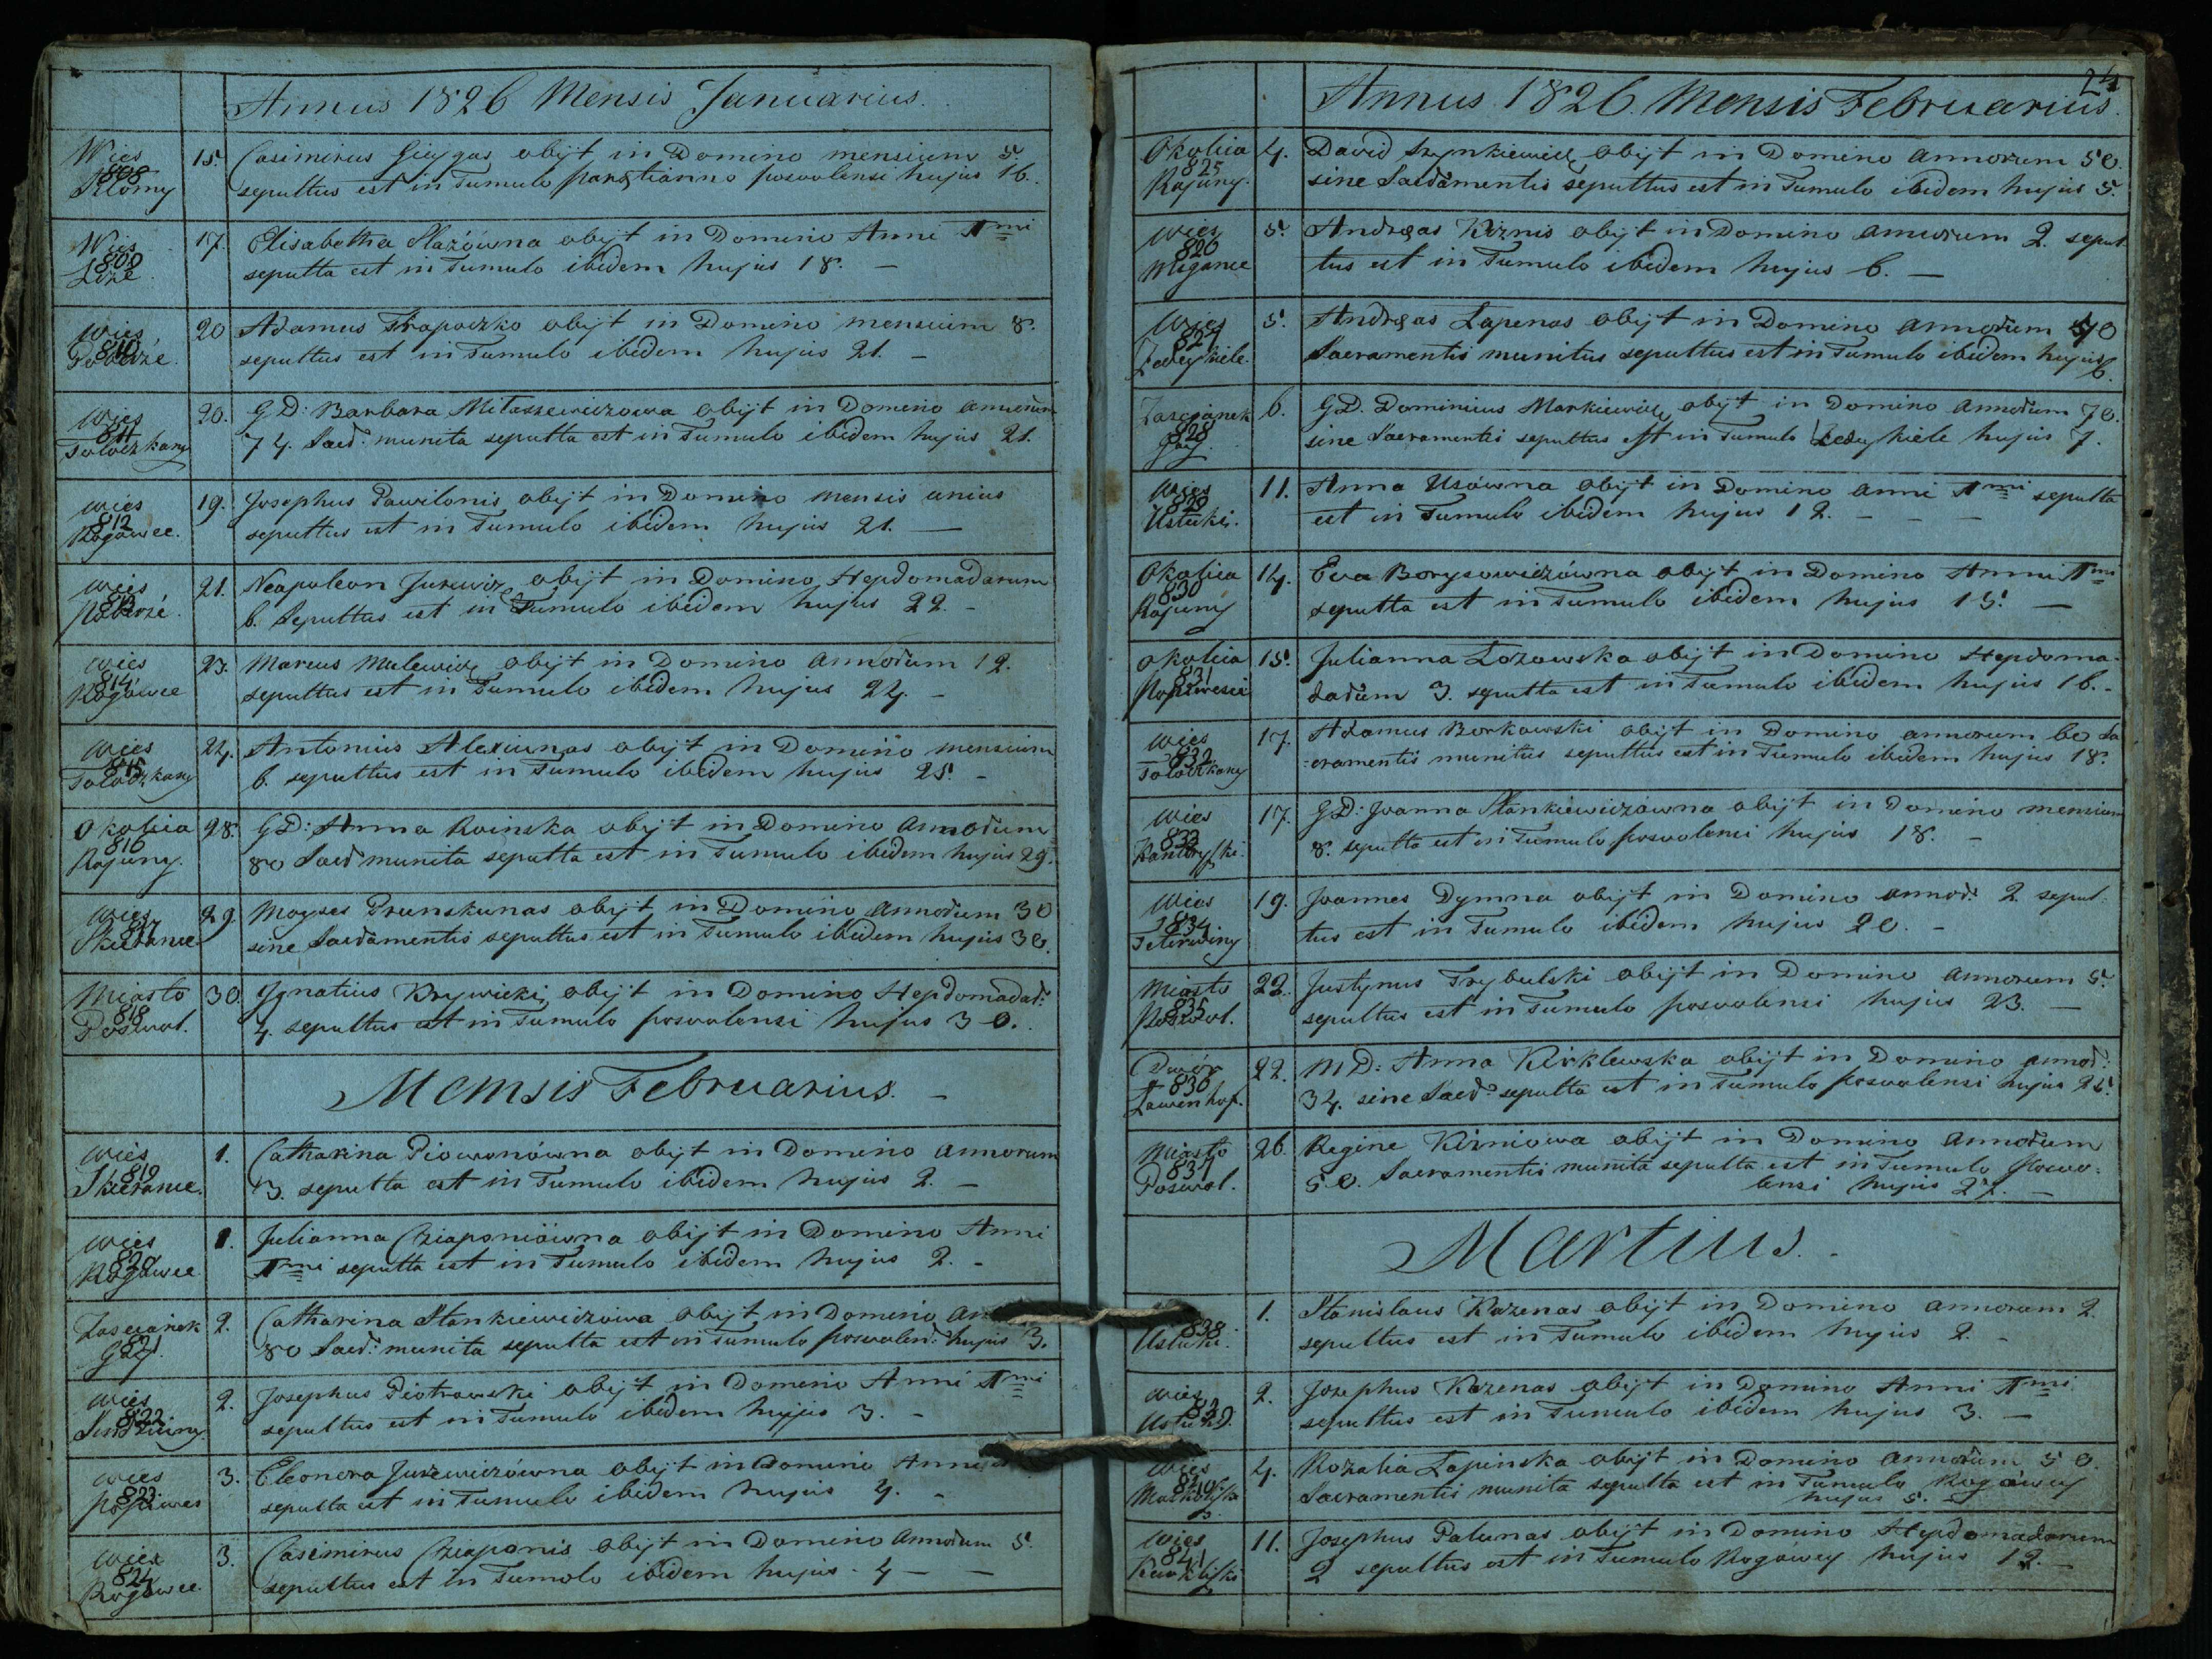 Annus 1826 Mensis Januarius.
Wies 808 15. Casimirus obijt in Domino mensium 5.
sepultus est in Tumulo posvolensi hujus 16.
Wies 809 17. Elisabetha obijt in Domino Anni 1mi
sepulta est in Tumulo ibidem hujus 18. –
Wies 810 20 Adamus obijt in Domino mensium 8.
sepultus est in Tumulo ibidem hujus 21. –
Wies 811 Tołoczkany 20. GD: Barbara Miłaszewiczowa obijt in Domino annorum
74. Sacr: munita sepulta est in Tumulo ibidem hujus 21.
Wies 812 Rogowce. 19. Josephus Pawilonis obijt in Domino mensis unius
sepultus est in Tumulo ibidem hujus 21. –
Wies 813 21. Neapoleon Jurewicz obijt in Domino Hepdomadarum
6. Sepultus est in Tumulo ibidem hujus 22. –
Wies 814 Rogowce 23. Marcus Malewicz obijt in Domino Annorum 12.
sepultus est in Tumulo ibidem hujus 24. –
Wies 815 Tołoczkany 24. Antonius Alexiunas obijt in Domino mensium
6. sepultus est in Tumulo ibidem hujus 25. –
Okolica 816 Rajuny. 28. GD: Anna Roinska obijt in Domino Annorum
80 Sacr munita sepulta est in Tumulo ibidem hujus 29.
Wies 817 29. Moyses Prunskunas obijt in Domino Annorum 30
sine Sacramentis sepultus est in Tumulo ibidem hujus 30.
Miasto 818 Poswol. 30. Ignatius Krywicki obijt in Domino Hepdomadar:
4. sepultus est in Tumulo posvolensi hujus 30.
Mensis Februarius. –
Wies 819 1. Catharina Piowonówna obijt in Domino annorum
3. sepulta est in Tumulo ibidem hujus 2. –
Wies 820 Rogowce 1. Julianna Czieponiówna obijt in Domino Anni
1mi sepulta est in Tumulo ibidem hujus 2. –
Zascianek 821 Gay. 2. Catharina Stankiewiczowa obijt in Domino
80 Sacr: munita sepulta est in Tumulo posvolen: hujus 3.
Wies 822 2. Josephus Piotrowski obijt in Domino Anni 1mi
sepultus est in Tumulo ibidem hujus 3. –
Wies 823 3. Eleonora Jurewiczówna obijt in Domino
sepulta est in Tumulo ibidem hujus 4. –
Wies 824 Rogowce. 3. Casimirus Czieponis obijt in Domino Annorum 5.
sepultus est in Tumolo ibidem hujus 4 – –
24
Annus 1826. Mensis Februarius.
Okolica 825 Rajuny. 4. David Szynkiewicz obijt in Domino Annorum 50.
sine Sacramentis sepultus est in Tumulo ibidem hujus 5.
Wies 826 5. Andreas Kirnis obijt in Domino annorum 2. sepul
tus est in Tumulo ibidem hujus 6. –
Wies 827 5. Andreas Lapenas obijt in Domino annorum 40
Sacramentis munitus sepultus est in Tumulo ibidem hujus 6.
Zascianek 828 Gay. 6. GD. Dominicus Markiewicz obijt in Domino Annorum 70.
sine Sacramentis sepultus est in Tumulo hujus 7.
Wies 829 Ustuki. 11. Anna Usówna obijt in Domino anni 1mi sepulta
est in Tumulo ibidem hujus 12. – – –
Okolica 830 Rajuny 14. Eva Borysowiczówna obijt in Domino Anni 1mi
sepulta est in Tumulo ibidem hujus 15. –
Okolica 831 15. Julianna Łozowska obijt in Domino Hepdoma-
darum 3. sepulta est in Tumulo ibidem hujus 16. –
Wies 832 Tołoczkany 17. Adamus Borkowski obijt in Domino annorum 60 Sa
cramentis munitus sepultus est in Tumulo ibidem hujus 18.
Wies 833 17. GD: Joanna Stankiewiczówna obijt in Domino mensium
8. sepulta est in Tumulo posvolensi hujus 18. –
Wies 834 Teterwiny 19. Joannes Dymna obijt in Domino annor. 2 sepul-
tus est in Tumulo ibidem hujus 20. –
Miasto 835 Poswol. 22. Justynus Trybulski obijt in Domino annorum 5.
sepultus est in Tumulo posvolensi hujus 23. –
Dwór 836 Lawenhof. 22. MD: Anna Kirklewska obijt in Domino annor:
34. sine Sacr: sepulta est in Tumulo posvolensi hujus
Miasto 837 Poswol. 26. Regine Kirniowa obijt in Domino Annorum
50. Sacramentis munita sepulta est in Tumulo Posvo-
lensi hujus 27. –
Martius. –
838 Ustuki. 1. Stanislaus Kozenas obijt in Domino annorum 2.
sepultus est in Tumulo ibidem hujus 2. –
Wies 839 2. Josephus Kozenas obijt in Domino Anni 1mi
sepultus est in Tumulo ibidem hujus 3. –
Wies 840 4. Rozalia Lapinska obijt in Domino Annorum 50.
Sacramentis munita sepulta est in Tumulo Rogówey
hujus 5. –
Wies 841 11. Josephus Palunas obijt in Domino Hepdomadarum
2 sepultus est in Tumulo Rogówey hujus 12. –